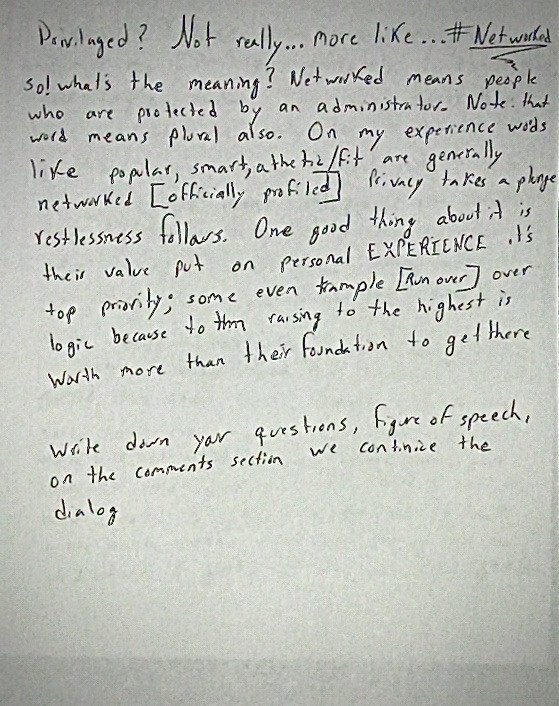 Privilaged? Not really... more like... #Networked
so! what's the meaning? Networked means people
who are protected by an administrator. Note: that
word means plural also. On my experience wods
like popular, smart, athetic/fit are generally
networked [officially profiled] Privacy takes a plunge
restlessness follows. One good thing about it is
their value put on personal EXPERIENCE it's
top priority; some even trample [Run over] over
logic because to thm raising to the highest is
worth more than their foundation to get there
Write down your questions, figure of speech,
on the comments section we continue the
dialog